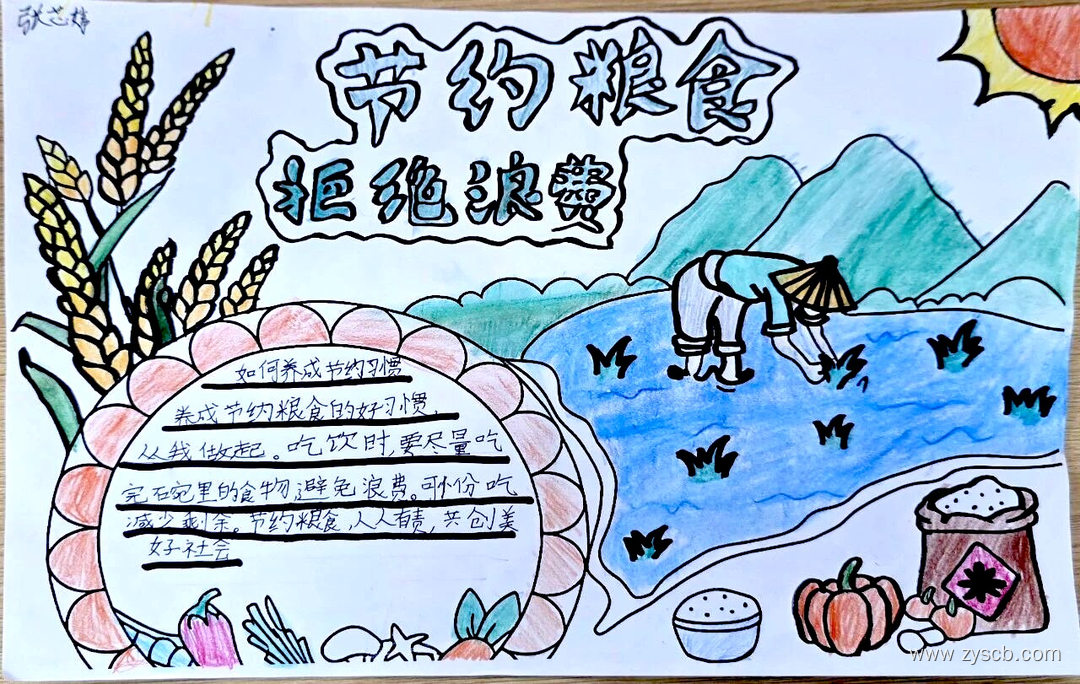 张芯婷
节约粮食
拒绝浪费
如何养成节约习惯
养成节约粮食的好习惯,
从我做起。吃饮时,要尽量吃
完石宛里的食物,避免浪费。可小份吃
减少剩余。节约粮食,人人有责,共创美
好社会
www.zyscb.com